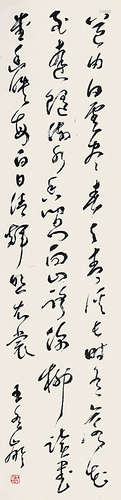 道由白雲盡春與青溪長時有落花
至遠隨流水香閒門向山路深柳讀書
堂幽映每白日清輝照衣裳
王冬齡